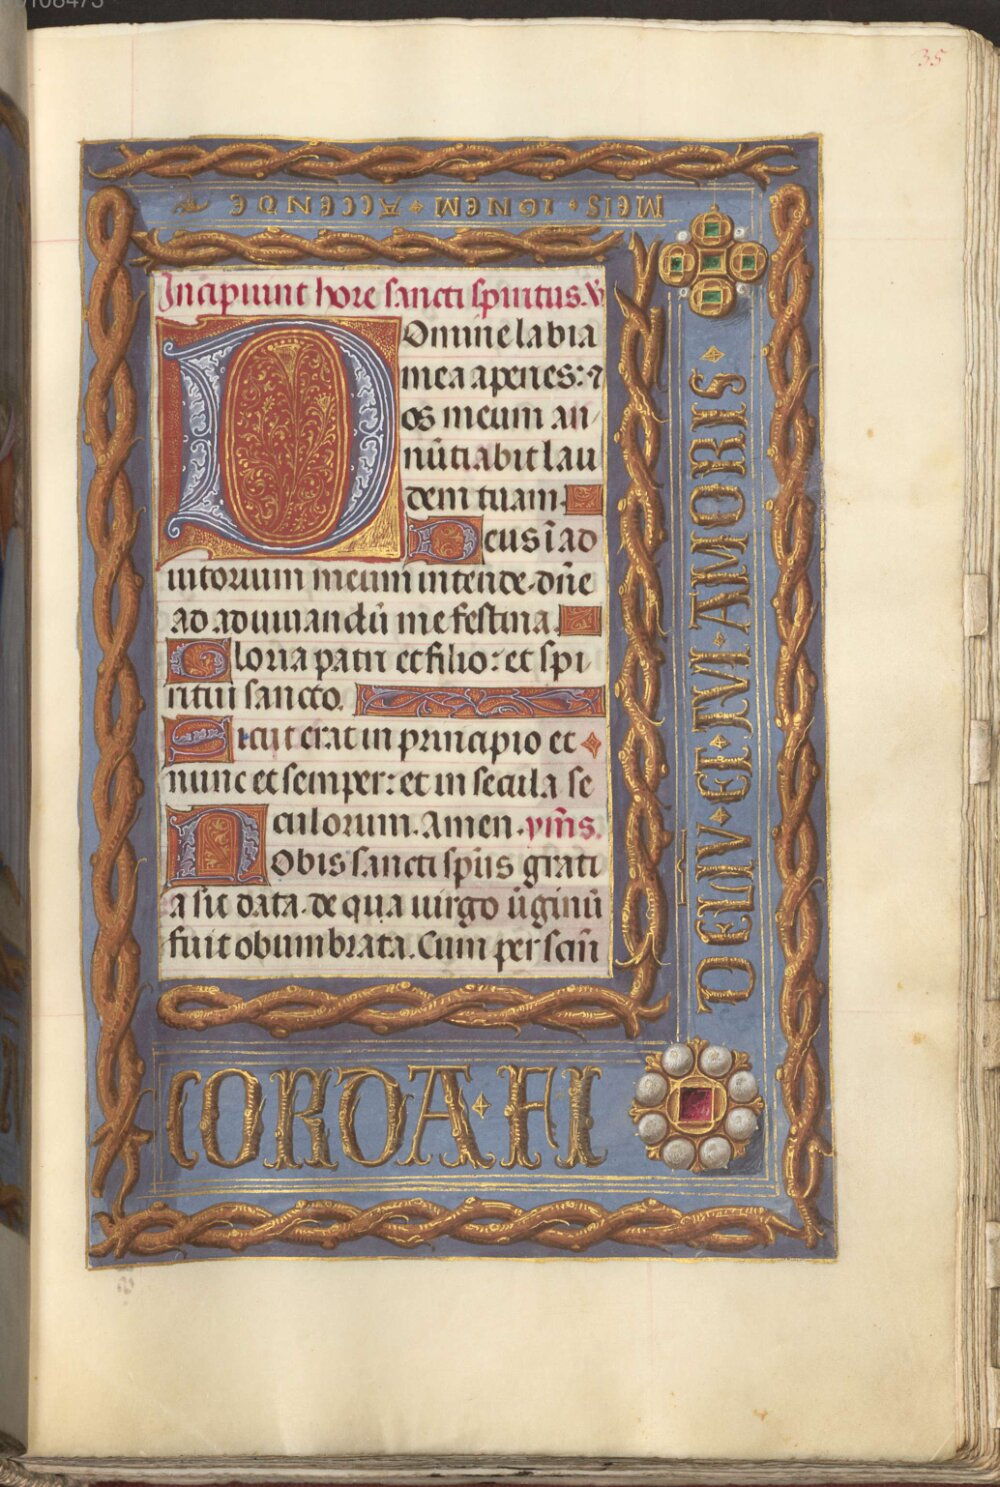 0108473
35
MEIS · IGNEM · ACCENDE
Incipiunt hore sancti spiritus. V
Domine labia
mea aperies: ⁊
os meum an-
nūtiabit lau
dem tuam.
Deus ī ad
iutorium meum intende. dn̄e
ad adiuuandū me festina.
Gloria patri et filio: et spi-
ritui sancto.
Sicut erat in principio et
nunc et semper: et in secula se
culorum. Amen. ym̄s.
Nobis sancti sp̄us grati
a sit data. de qua uirgo ūginū
fuit obumbrata. Cum per scm̄
CORDA · FI
DELIV̄ · ET · TVI · AMORIS ·